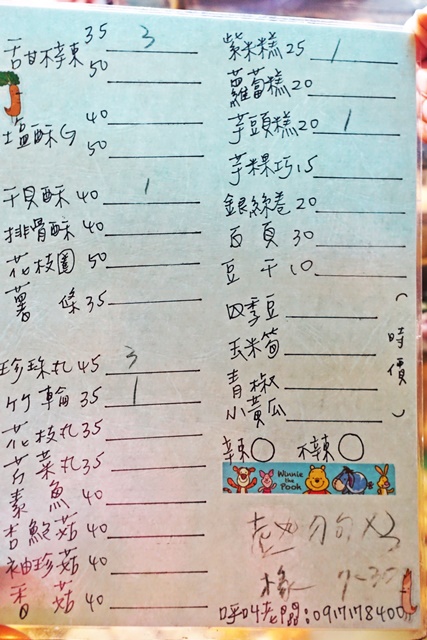 35 3
甜不辣
50
40
塩酥G
50
干貝酥 40 1
排骨酥 40
花枝圈 50
薯條 35
珍珠丸 45 3
竹輪 35 1
花枝丸 35
芹菜丸 35
素魚 40
杏鮑菇 40
袖珍菇 40
香菇 40
紫米糕 25 1
蘿蔔糕 20
芋頭糕 20 1
芋粿巧 15
銀絲卷 20
百頁 30
豆干 10
四季豆
玉米筍
青椒
小黃瓜
(時價)
辣○ 不辣○
Winnie the Pooh
:0917178400